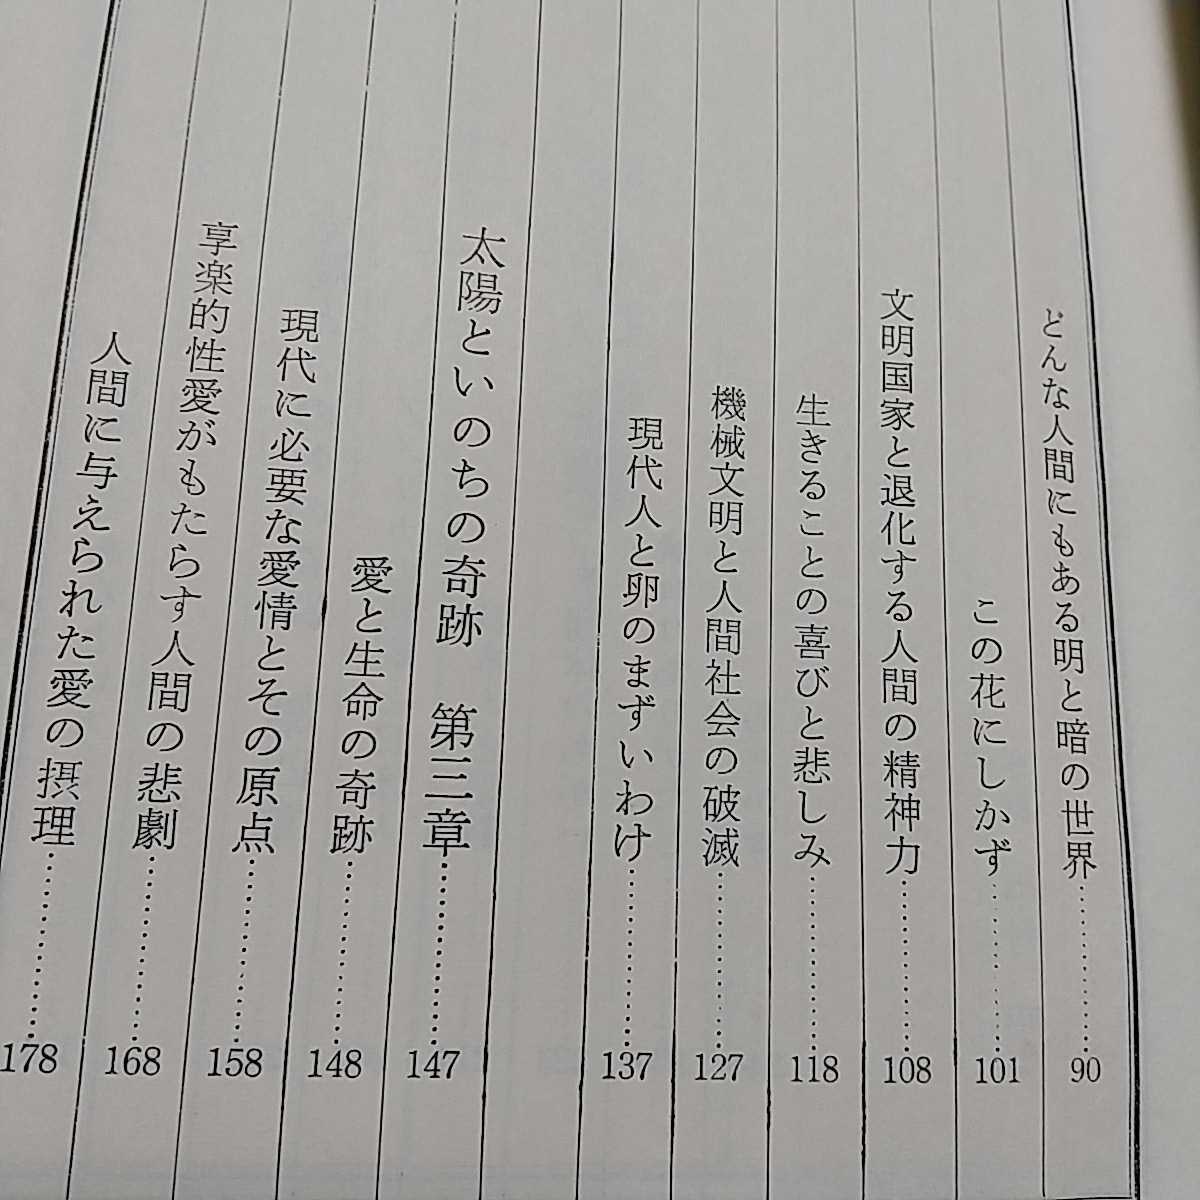 どんな人間にもある明と暗の世界……………90
この花にしかず……………101
文明国家と退化する人間の精神力……………108
生きることの喜びと悲しみ……………118
機械文明と人間社会の破滅……………127
現代人と卵のまずいわけ……………137
太陽といのちの奇跡　第三章……………147
愛と生命の奇跡……………148
現代に必要な愛情とその原点……………158
享楽的性愛がもたらす人間の悲劇……………168
人間に与えられた愛の摂理……………178